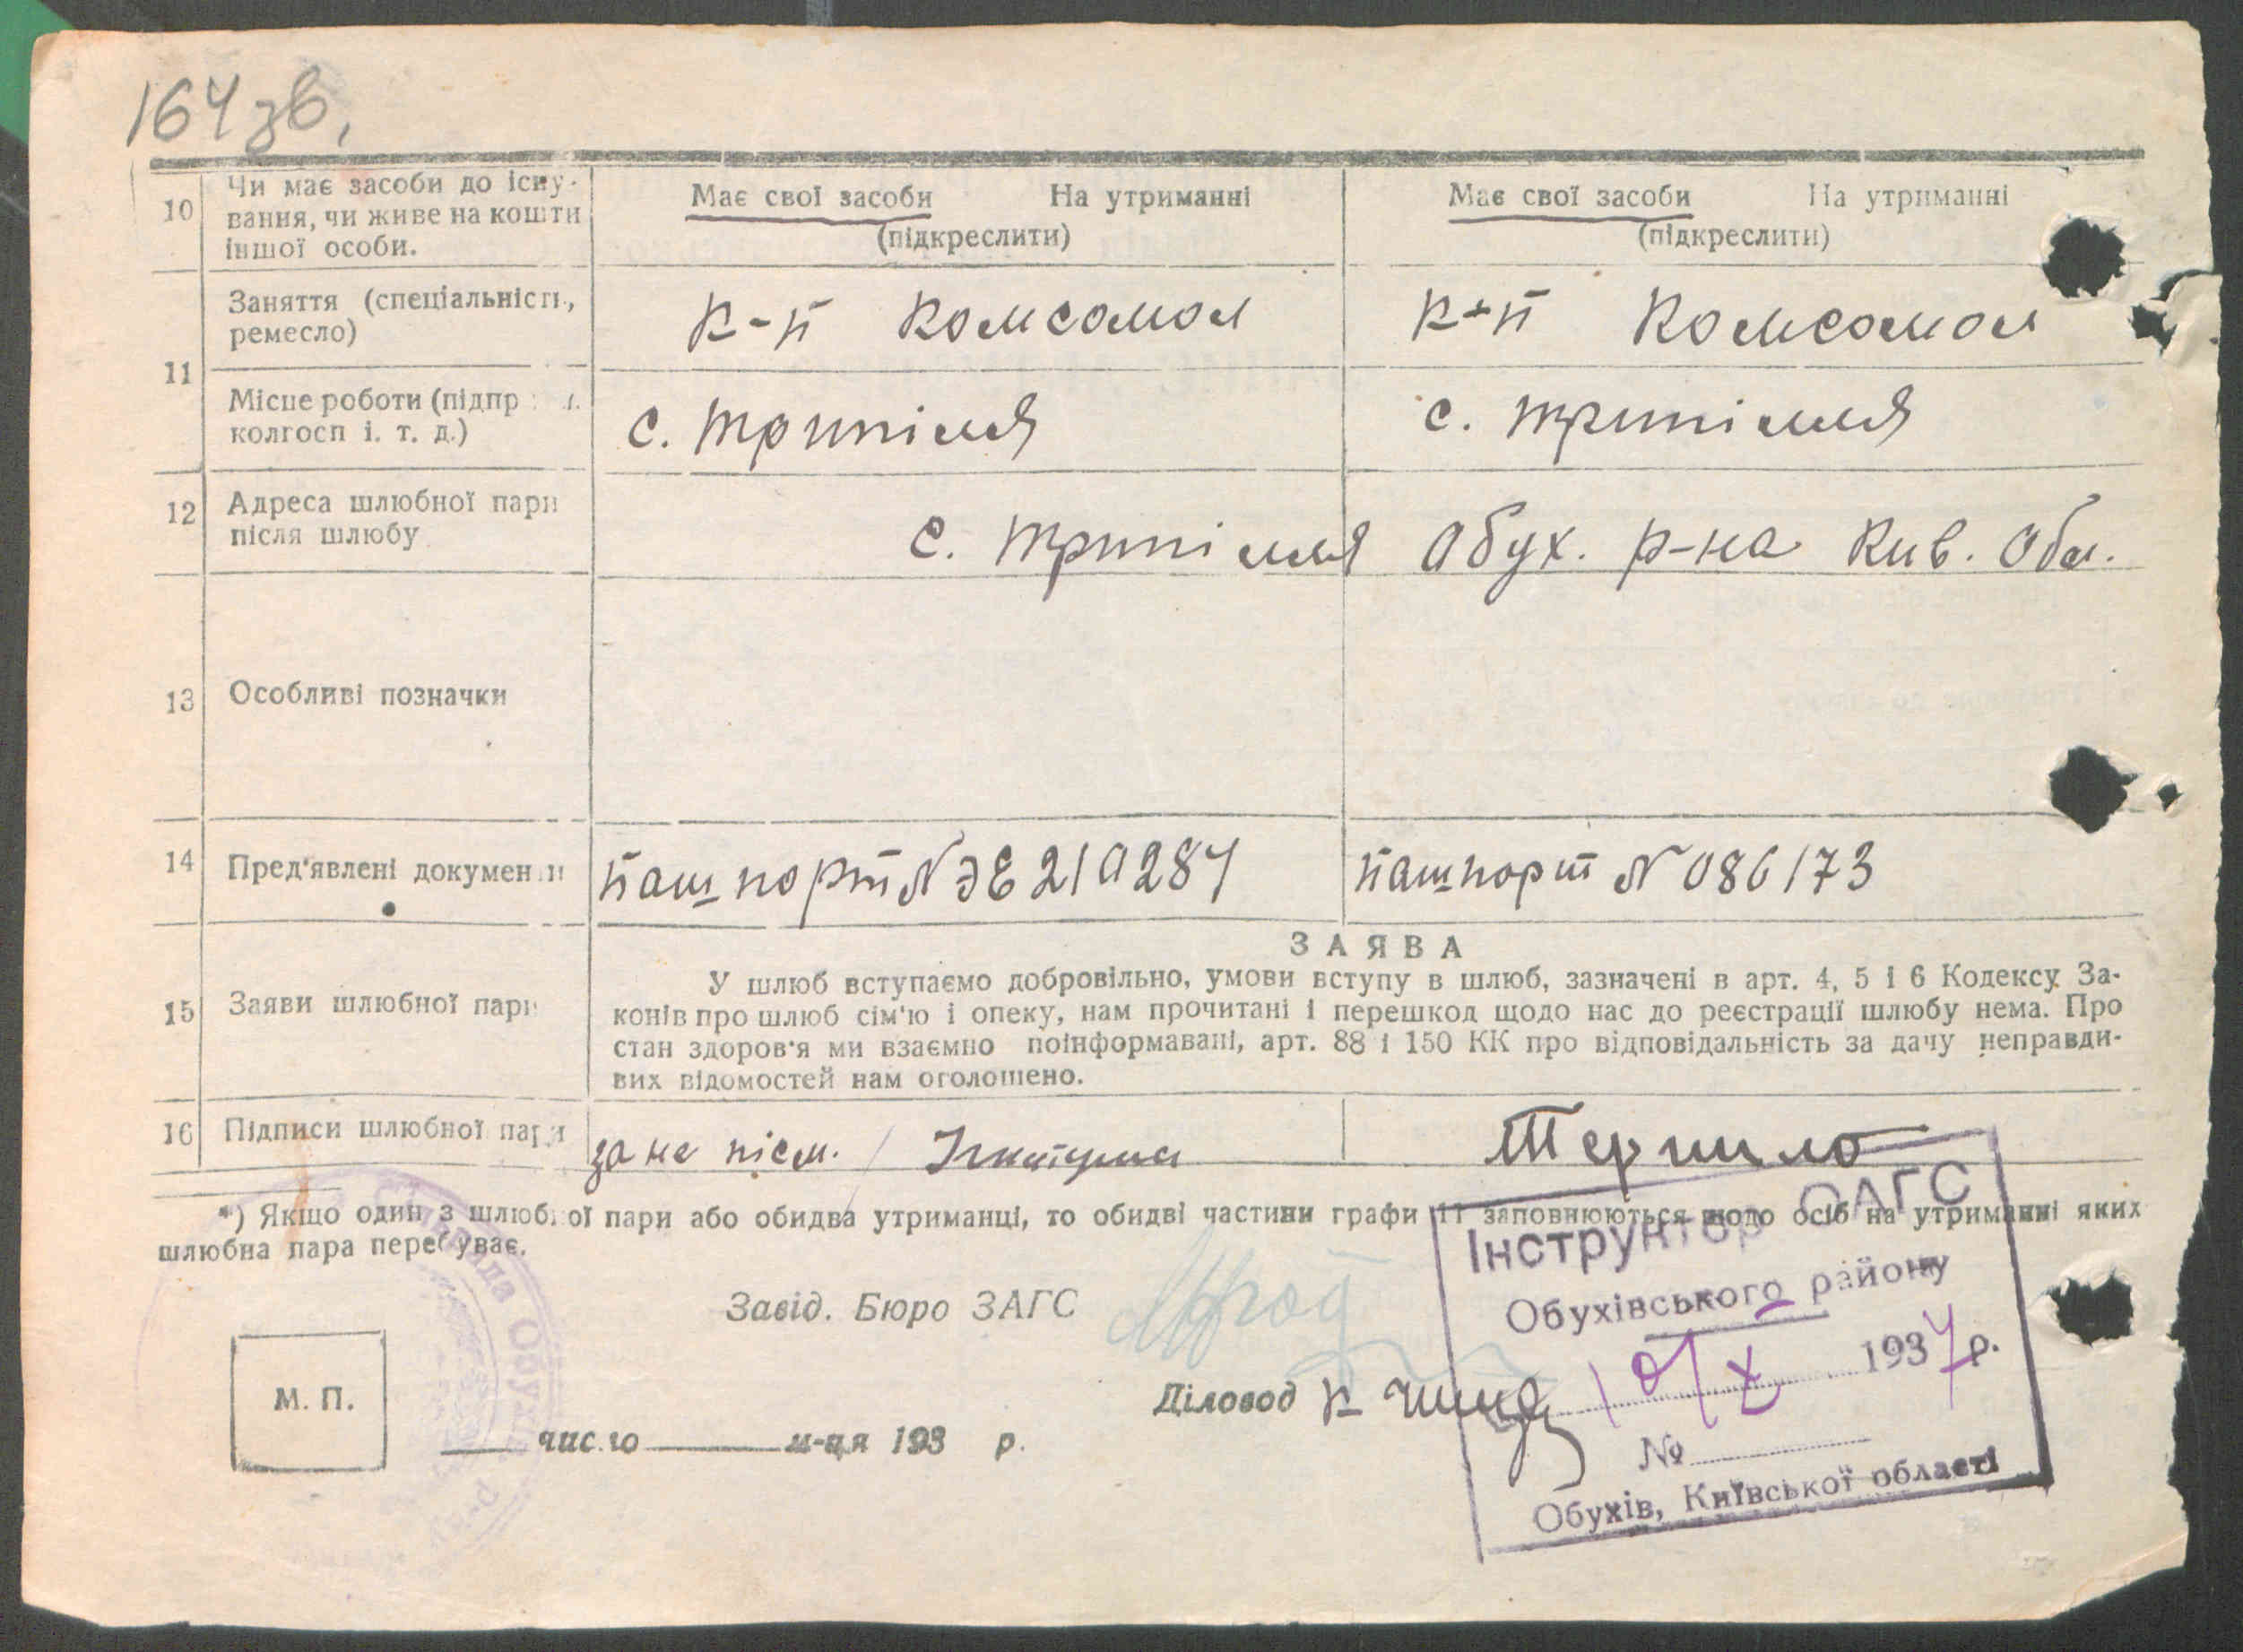 164 зв.
10 Чи має засоби до існу-
вання, чи живе на кошти
іншої особи.
Має свої засоби На утриманні
(підкреслити)
Має свої засоби На утриманні
(підкреслити)
11
Заняття (спеціальність,
ремесло)
К-п Комсомол
К-п Комсомол
Місце роботи (підпр
колгосп і. т. д.)
с. Трипілля
с. Трипілля
12 Адреса шлюбної пари
після шлюбу
с. Трипілля Обух. р-на Київ. Обл.
13 Особливі позначки
14 Пред'явлені документи
пашпорт № ЭЕ 210284
пашпорт № 086173
15 Заяви шлюбної пари
ЗАЯВА
У шлюб вступаємо добровільно, умови вступу в шлюб, зазначені в арт. 4, 5 і 6 Кодексу За-
конів про шлюб сім'ю і опеку, нам прочитані і перешкод щодо нас до реєстрації шлюбу нема. Про
стан здоров'я ми взаємно поінформавані, арт. 88 і 150 КК про відповідальність за дачу неправди-
вих відомостей нам оголошено.
16 Підписи шлюбної пари
за не писм.
Терпило
*) Якщо один з шлюбної пари або обидва утриманці, то обидві частини графи 11 заповнюються щодо осіб на утриманні яких
шлюбна пара перебуває.
Інструктор ЗАГС
Обухівського району
193 р.
№
Обухів, Київської області
Завід. Бюро ЗАГС
Діловод
М. П.
число м-ця 193 р.